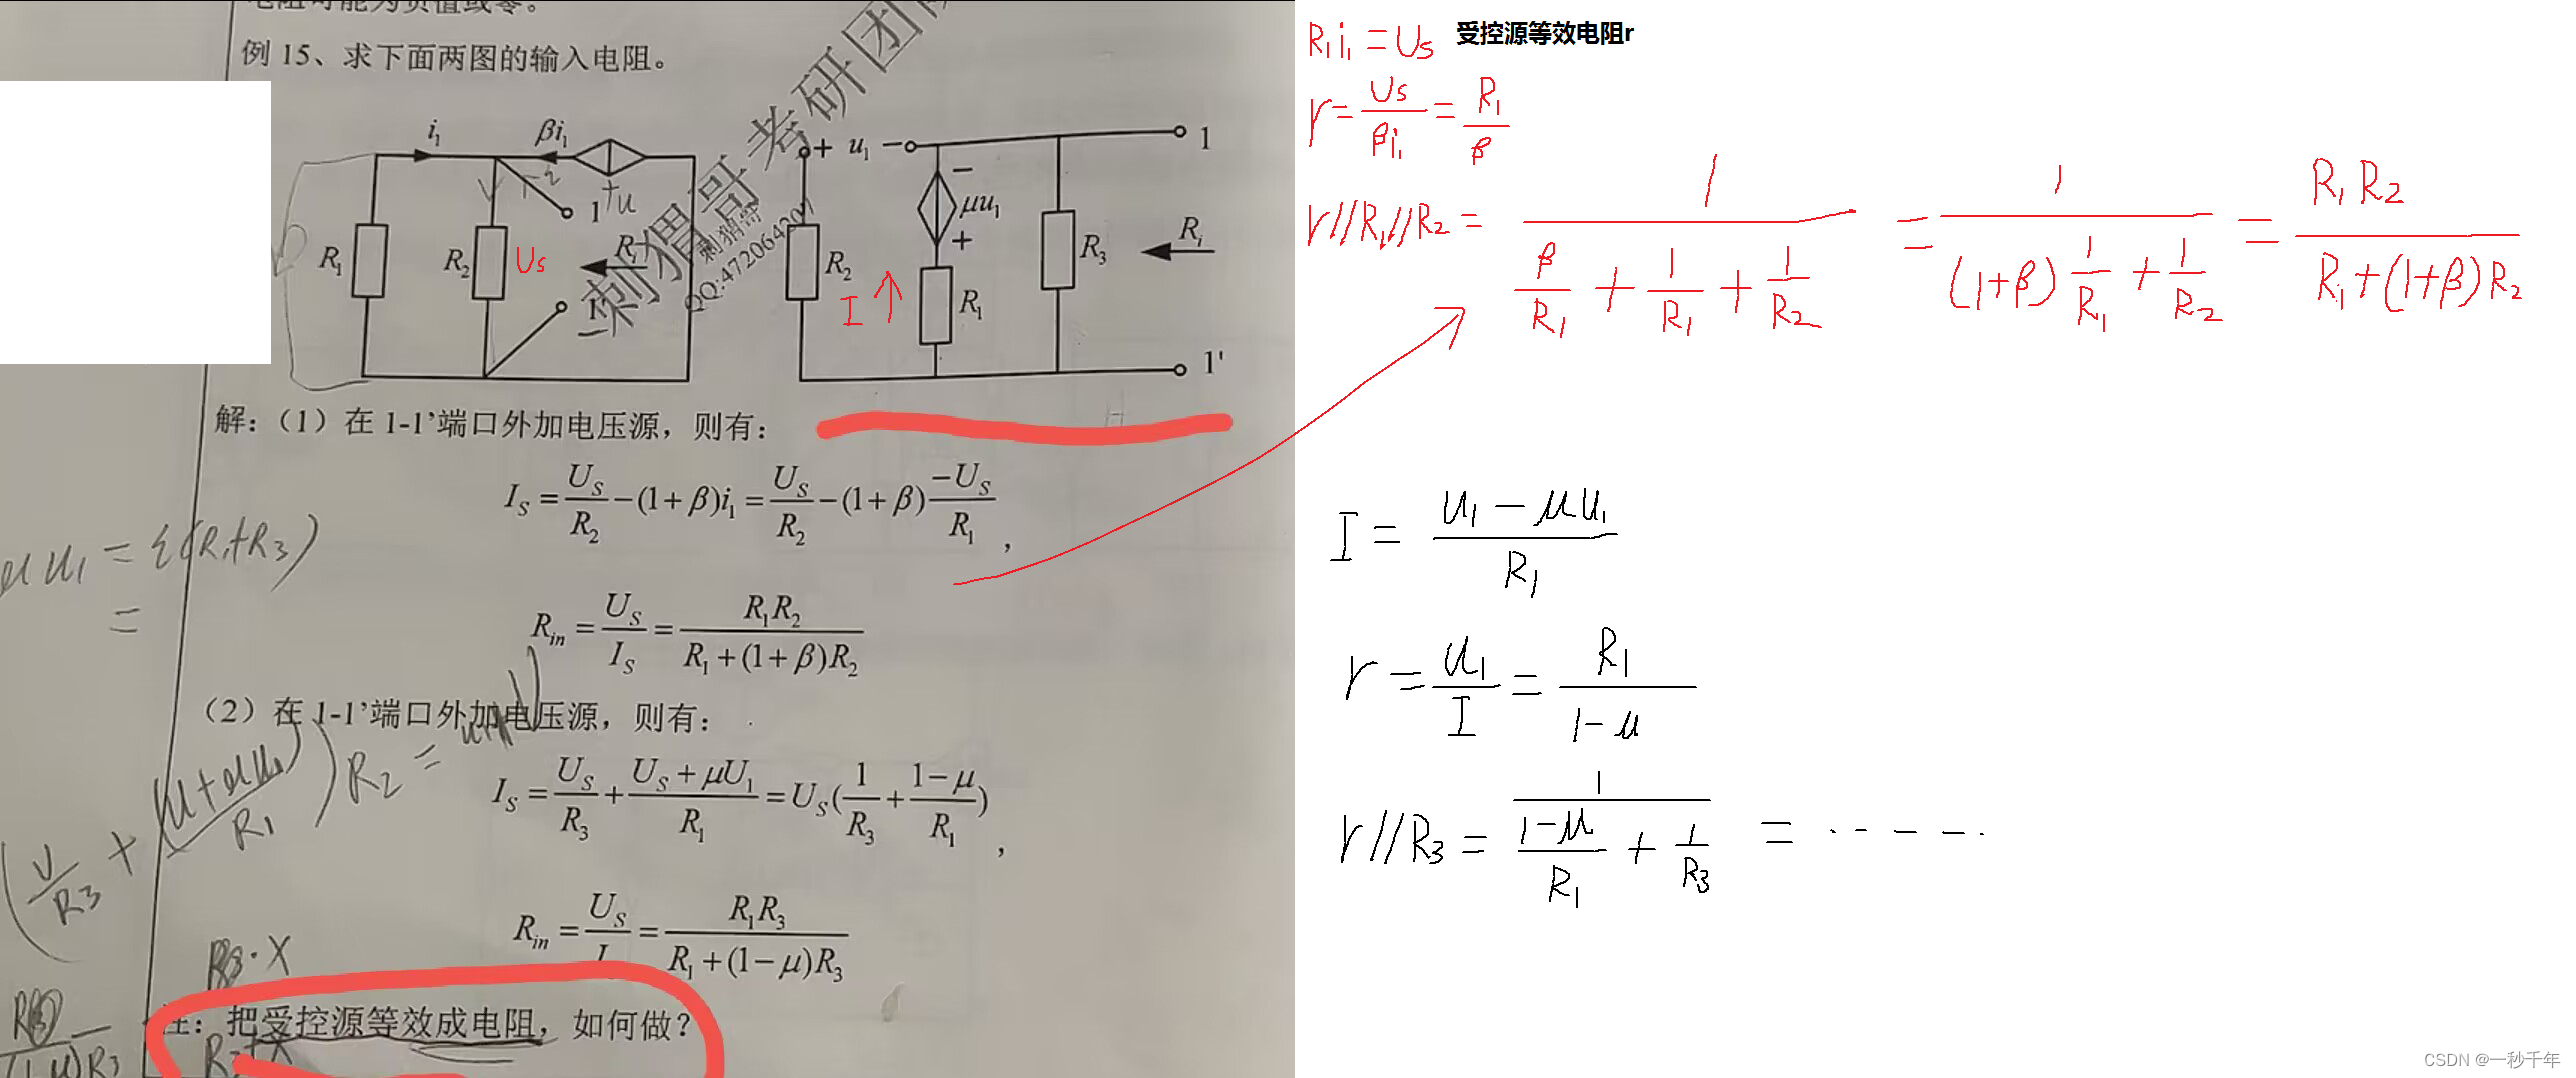 电阻可能为负值或零。
例 15、求下面两图的输入电阻。
i₁
βi₁
+u
1
R₁
R₂
Us
1'
+ u₁ −
1
−
μu₁
+
R₂
I
R₁
R₃
Rᵢ
1'
刺猬哥考研团队
刺猬哥
QQ:472064207
解：（1）在 1-1’端口外加电压源，则有：
I_S = U_S/R₂ − (1+β)i₁ = U_S/R₂ − (1+β) −U_S/R₁ ，
R_in = U_S/I_S = R₁R₂/(R₁+(1+β)R₂)
（2）在 1-1’端口外加电压源，则有：
I_S = U_S/R₃ + (U_S+μU₁)/R₁ = U_S(1/R₃ + (1−μ)/R₁) ，
R_in = U_S/I = R₁R₃/(R₁+(1−μ)R₃)
注：把受控源等效成电阻，如何做？
R₁i₁ = Us 受控源等效电阻r
r = Us/βi₁ = R₁/β
r//R₁//R₂ = 1/(β/R₁ + 1/R₁ + 1/R₂) = 1/((1+β)1/R₁ + 1/R₂) = R₁R₂/(R₁+(1+β)R₂)
I = (u₁−μu₁)/R₁
r = u₁/I = R₁/(1−μ)
r//R₃ = 1/((1−μ)/R₁ + 1/R₃) = ······
CSDN @一秒千年